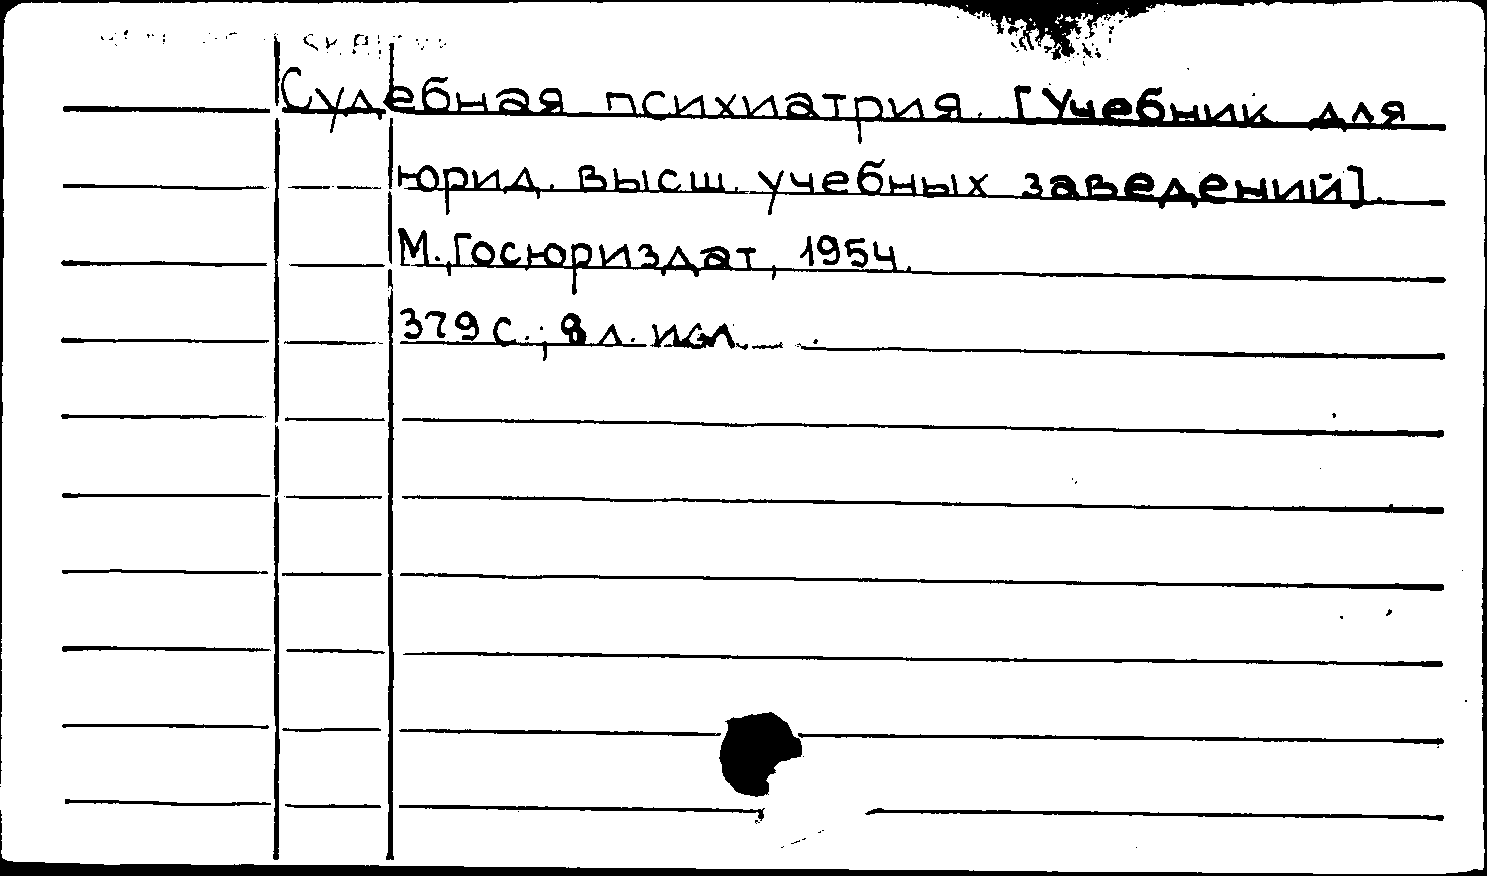 Судебная психиатрия. [Учебник для
юрид. высш. учебных заведений].
М., Госюриздат, 1954.
379 с.; 8 л. илл.